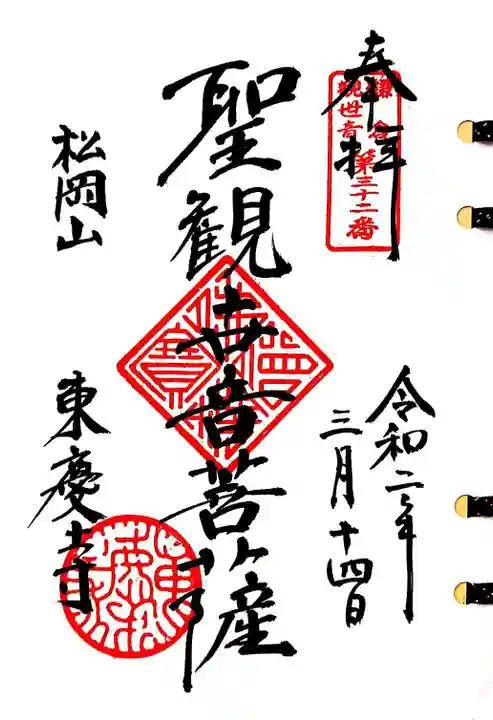 奉拝
鎌倉
観世音第三十二番
令和二年
三月十四日
聖観世音菩薩
松岡山
東慶寺